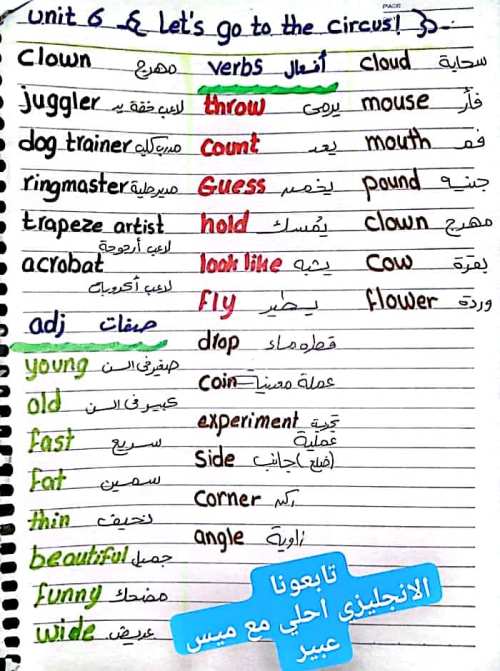 unit 6 & Let's go to the circus!
clown مهرج
juggler لاعب خفة يد
dog trainer مدرب كلاب
ringmaster مدير حلبة
trapeze artist
لاعب أرجوحة
acrobat
لاعب أكروبات
adj صفات
young صغير فى السن
old كبير فى السن
fast سريع
fat سمين
thin نحيف
beautiful جميل
funny مضحك
wide عريض
verbs أفعال
throw يرمى
count يعد
Guess يخمن
hold يُمسك
look like يشبه
fly يطير
drop قطره ماء
coin عملة معدنية
experiment تجربة
عملية
side جانب (ضلع)
corner ركن
angle زاوية
cloud سحابة
mouse فأر
mouth فم
pound جنيه
clown مهرج
cow بقرة
flower وردة
تابعونا
الانجليزى احلي مع ميس
عبير